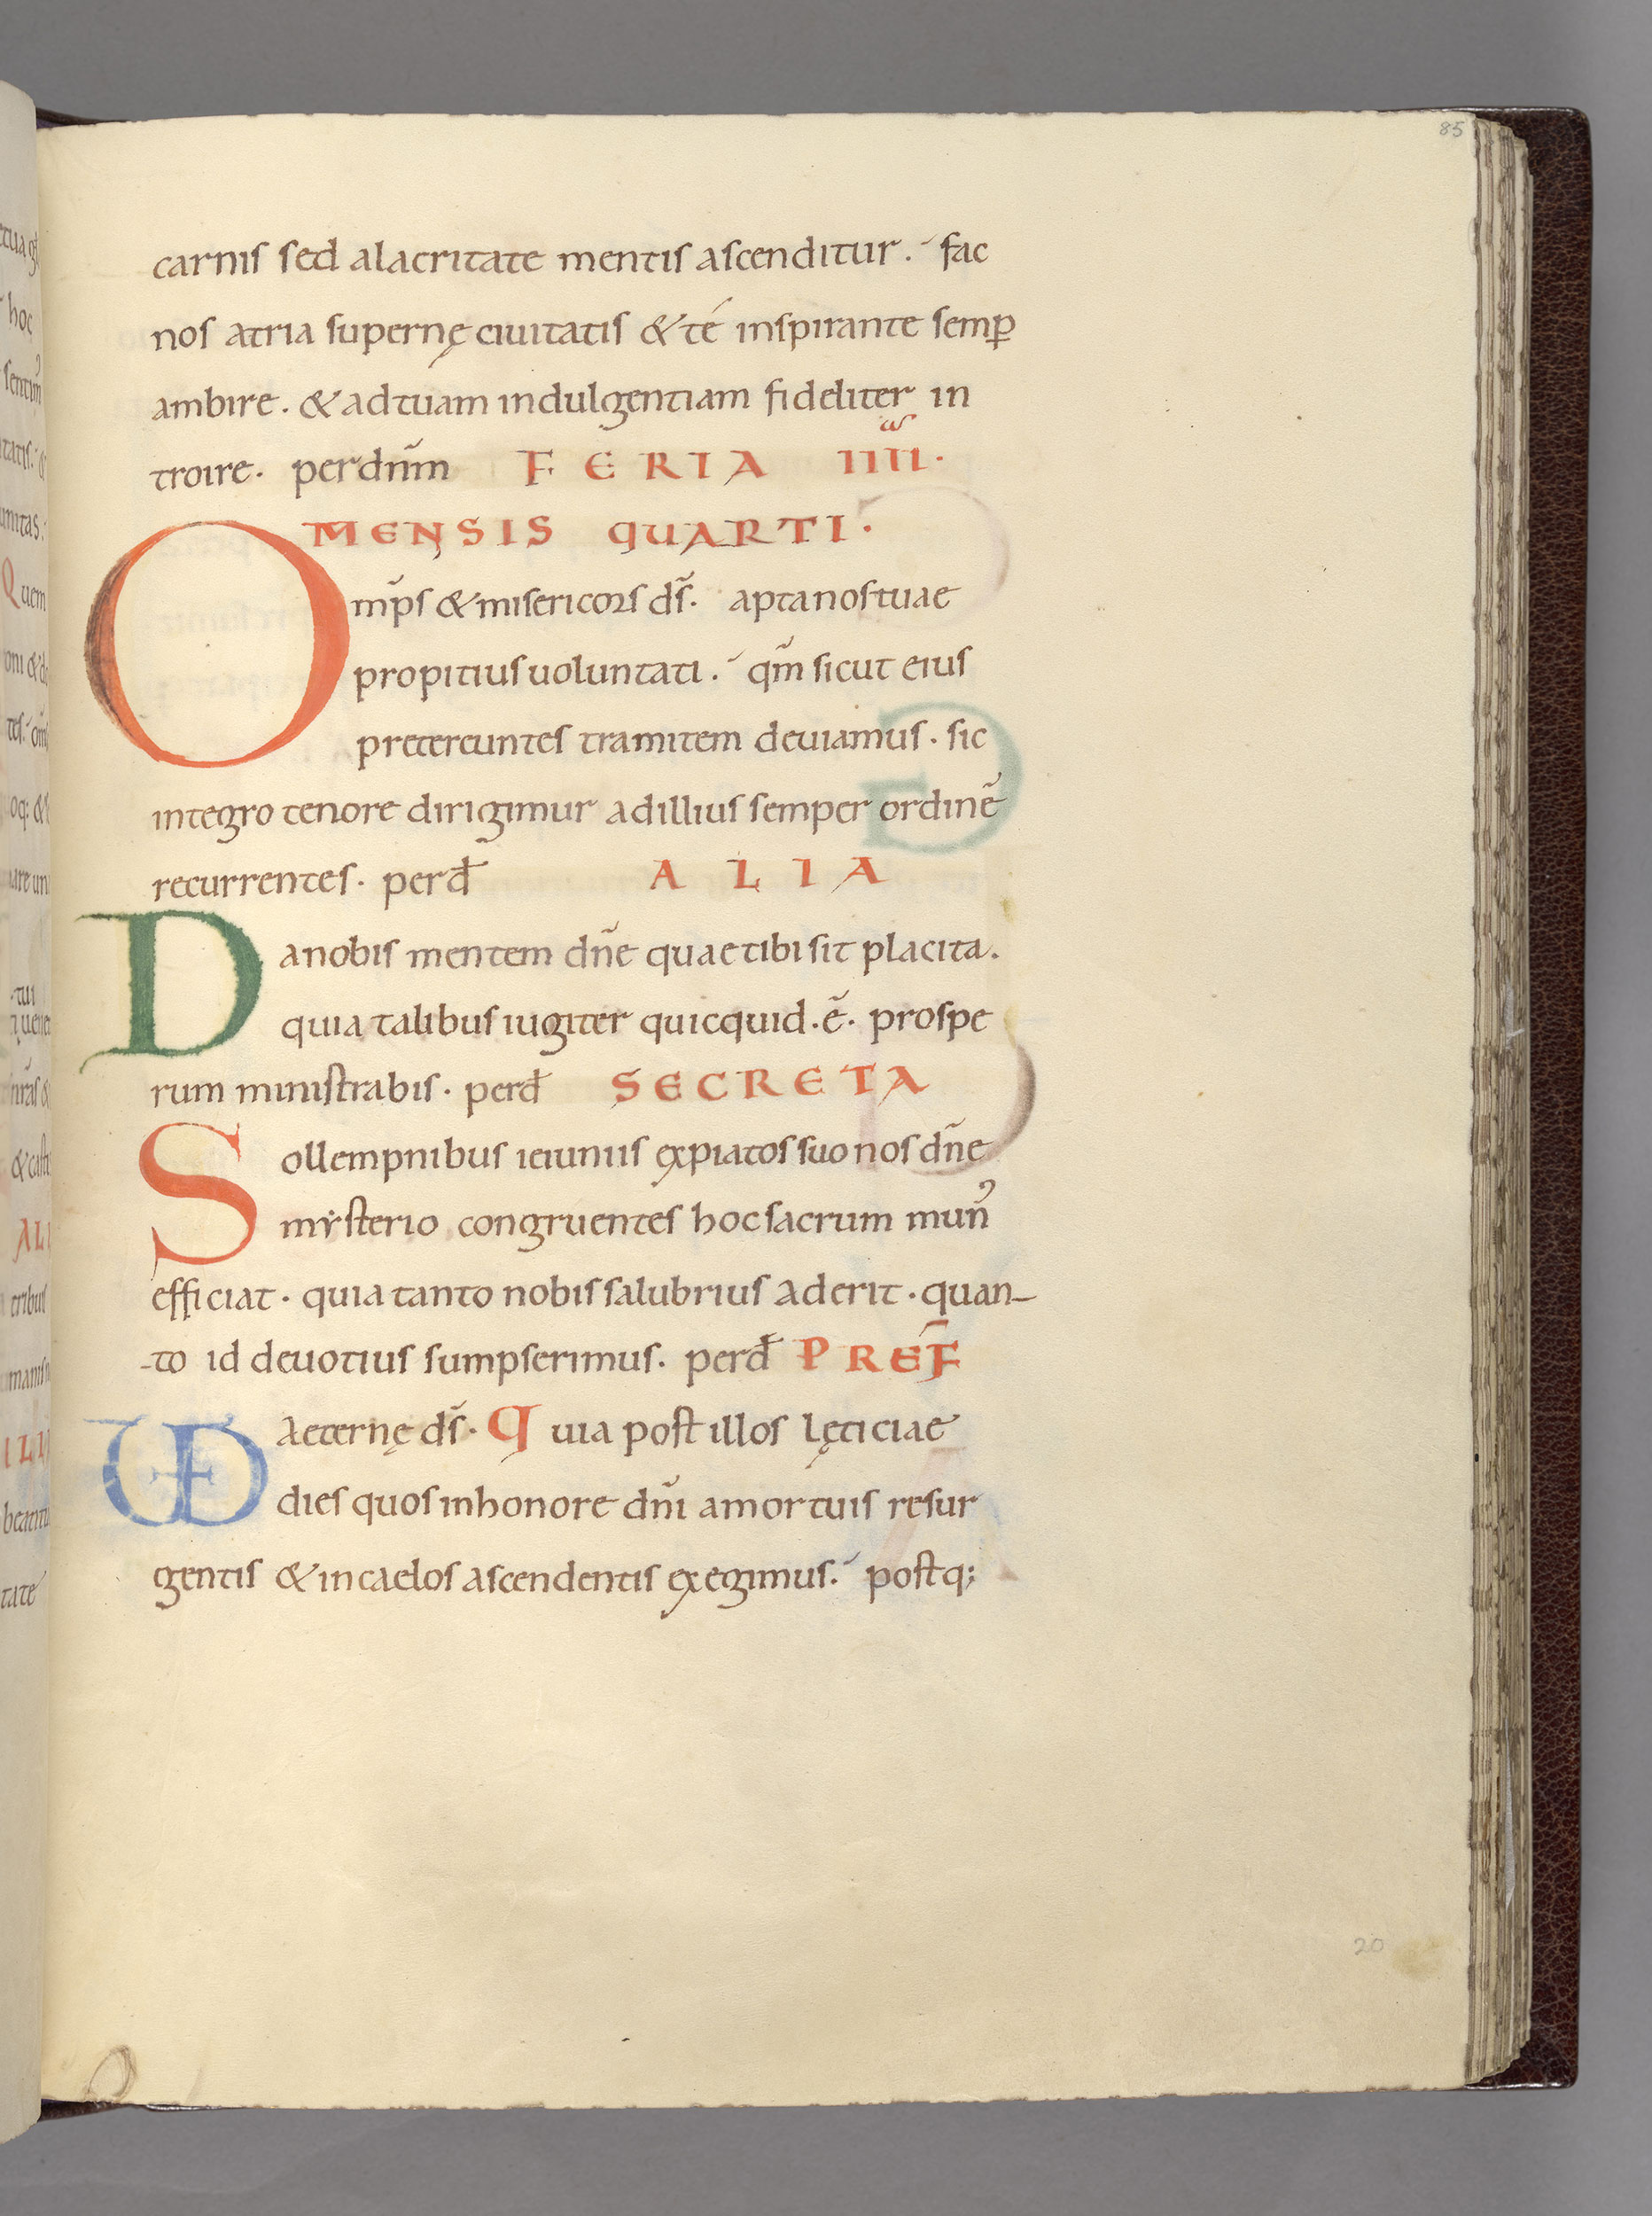 85
carnis sed alacritate mentis ascenditur. fac
nos atria supernę ciuitatis & té inspirante semꝑ
ambire. & ad tuam indulgentiam fideliter in
troire. per dnm̄ FERIA IIII.
MENSIS QUARTI.
Omp̄s & misericors ds̄. apta nos tuae
propitius uoluntati. qm̄ sicut eius
pretereuntes tramitem deuiamus. sic
integro tenore dirigimur ad illius semper ordinē
recurrentes. per d̄ ALIA
Da nobis mentem dn̄e quae tibi sit placita.
quia talibus iugiter quicquid .ē. prospe
rum ministrabis. per d̄ SECRETA
Sollempnibus ieiuniis expiatos suo nos dn̄e
mẏsterio congruentes hoc sacrum mun᾽
efficiat. quia tanto nobis salubrius aderit. quan-
-to id deuotius sumpserimus. per d̄ PREF̄
UD Aeternę ds̄. Quia post illos lęticiae
dies quos in honore dn̄i a mortuis resur
gentis & in caelos ascendentis exegimus. postq;
20